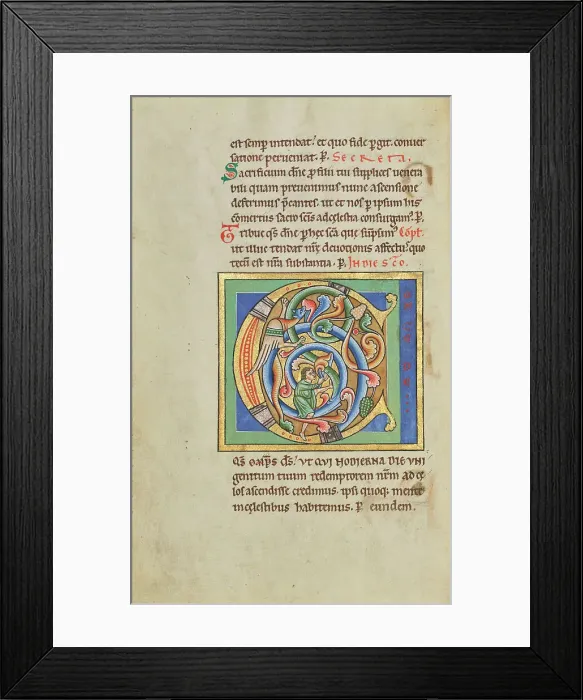 est semp intendat. et quo fide pgit. conver
satione perveniat. P. Secreta.
Sacrificium dne p filii tui supplices venera
bili quam prevenimus nunc ascensione
deferimus pcantes. ut et nos p ipsum his
comertiis sacrosčis ad celestia consurgam. P.
Tribue qs dne p hec sča que supsim Copl.
ut illuc tendat nre devotionis affectu quo
tecū est nra substantia. P. In die sčo.
C
omps ds. ut qui hodierna die uni
genitum tuum redemptorem nrm ad ce
los ascendisse credimus. ipsi quoq; mente
in celestibus habitemus. P eundem.